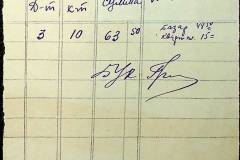 Д-т К-т Сумма
3 10 63 50 Базар 48 50
Квартп. 15 =
Бух